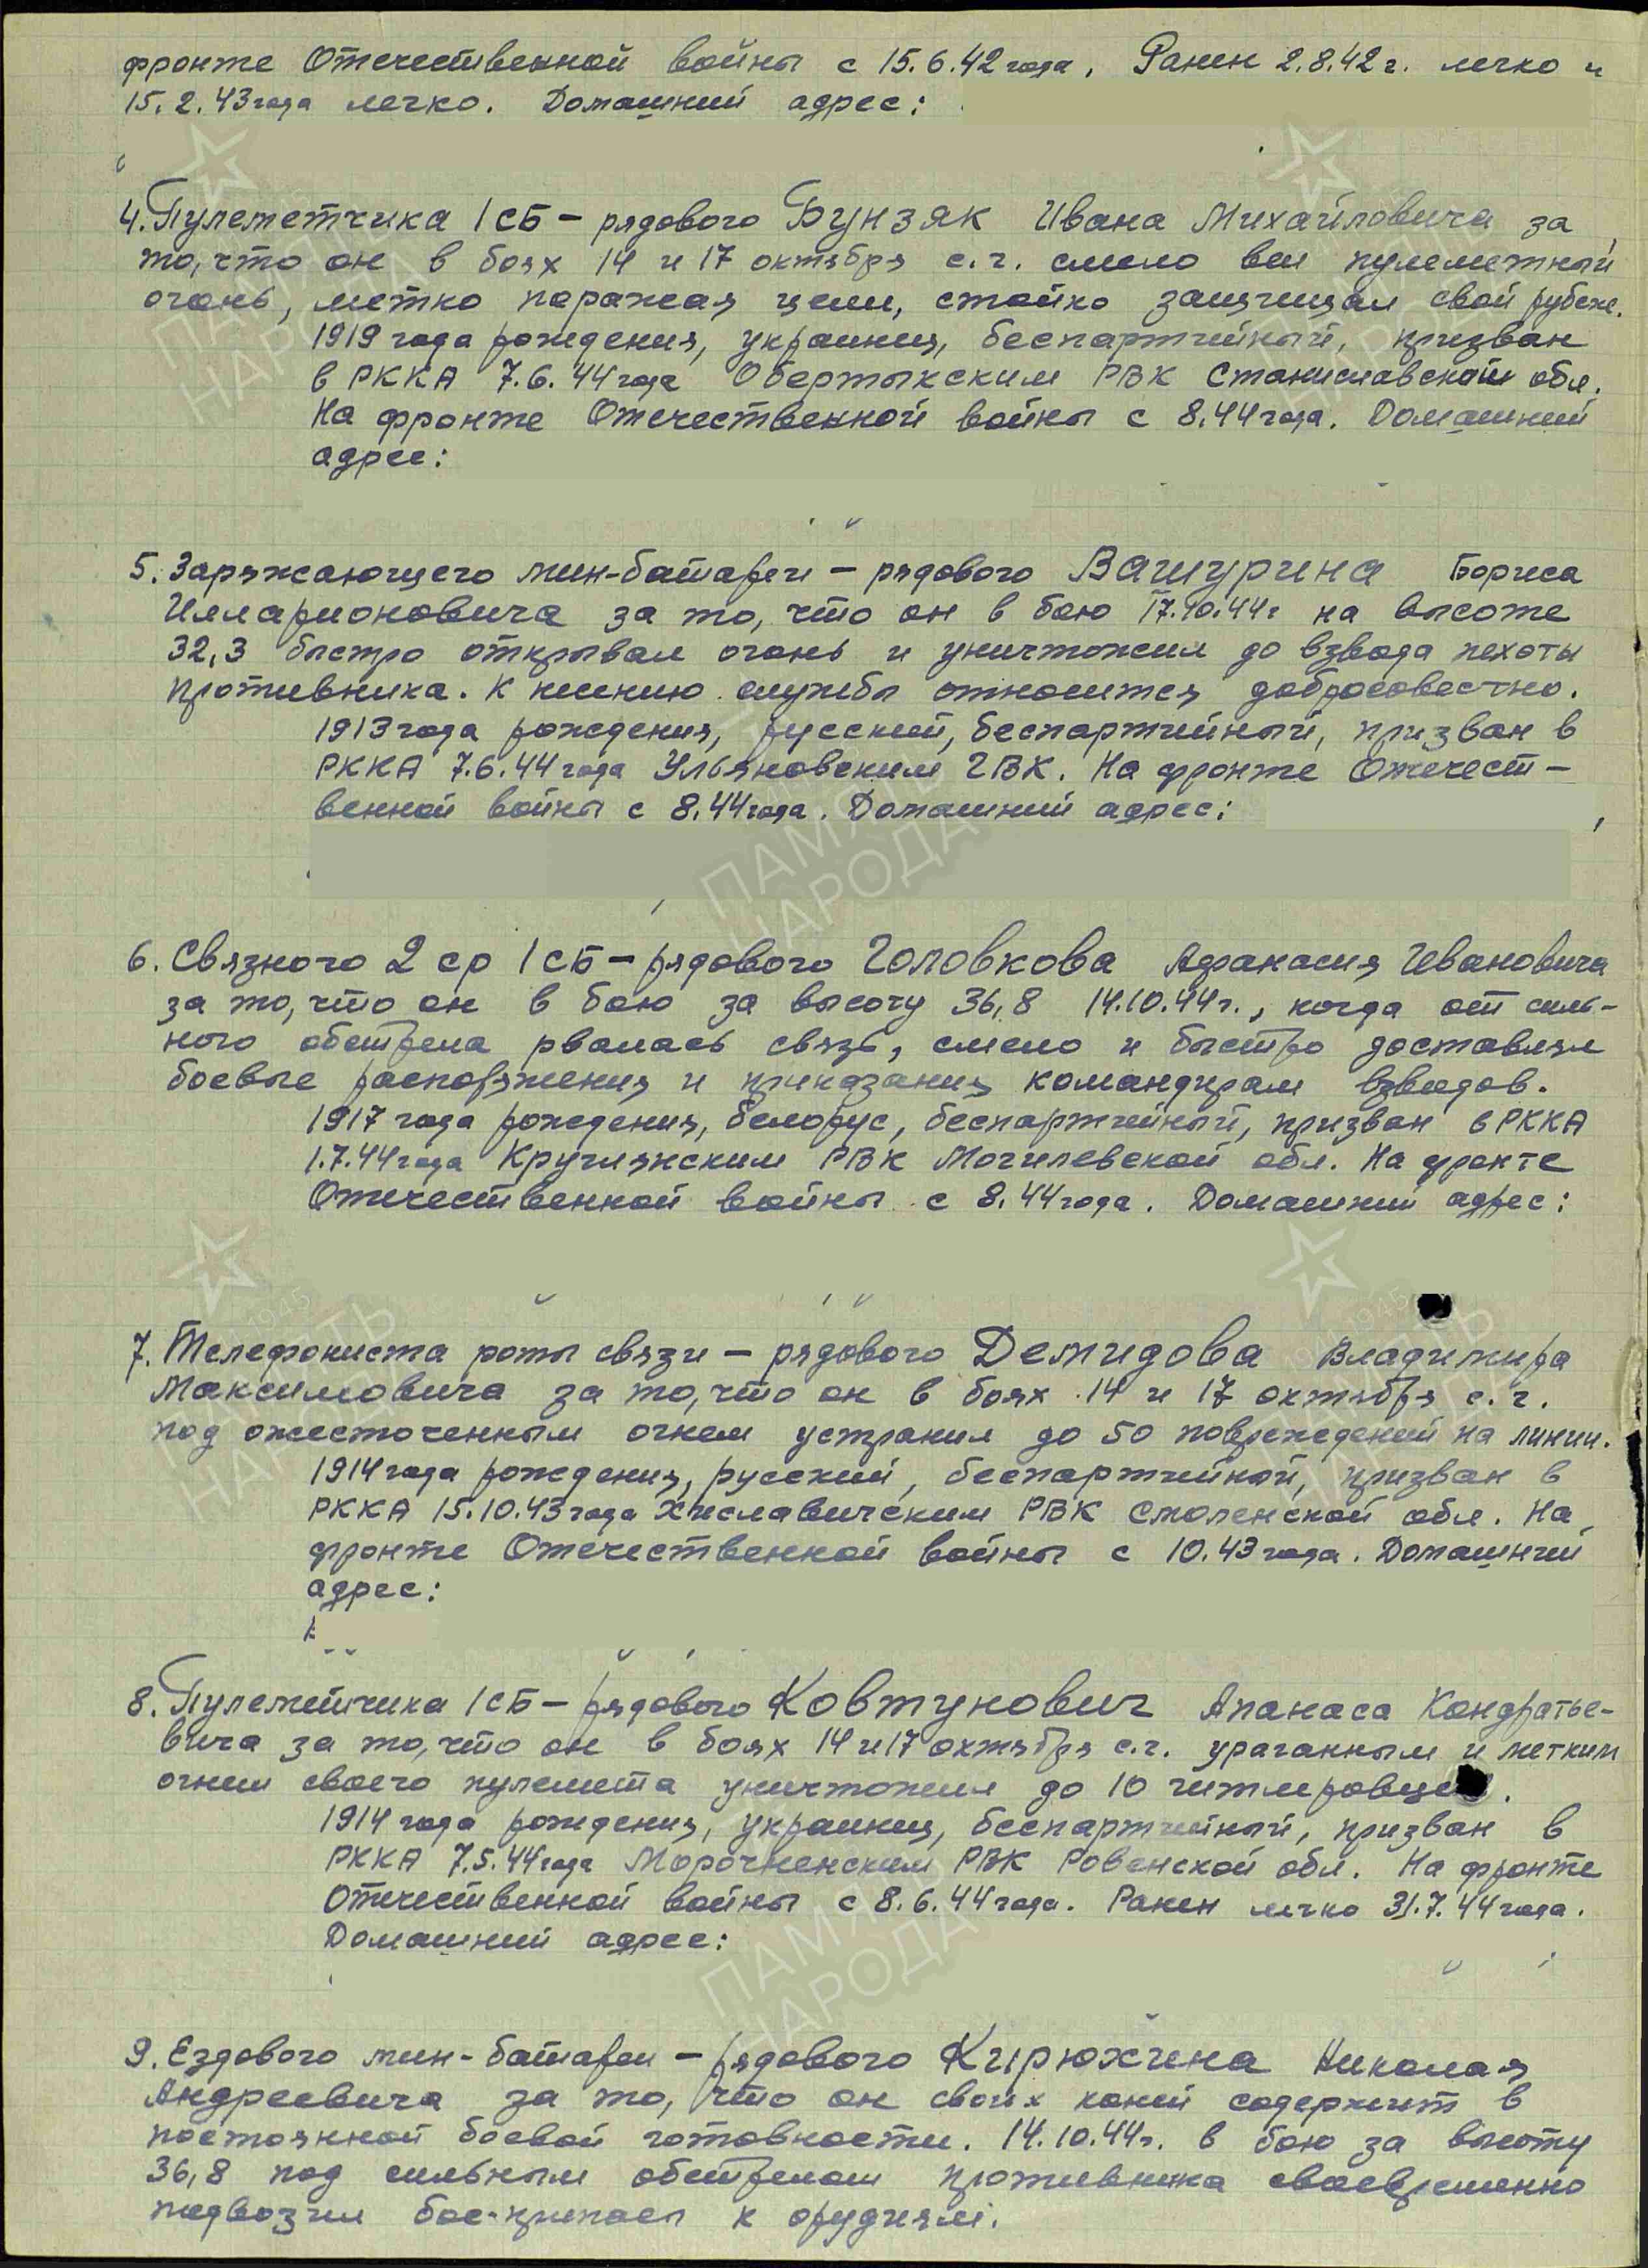 фронте Отечественной войны с 15.6.42 года. Ранен 2.8.42 г. легко и
15.2.43 года легко. Домашний адрес:
4. Пулеметчика 1 СБ – рядового Бунзяк Ивана Михайловича за
то, что он в боях 14 и 17 октября с.г. смело вел пулеметный
огонь, метко поражая цели, стойко защищал свой рубеж.
1919 года рождения, украинец, беспартийный, призван
в РККА 7.6.44 года Обертыхским РВК Станиславской обл.
На фронте Отечественной войны с 8.44 года. Домашний
адрес:
5. Заряжающего мин-батареи – рядового Вашурина Бориса
Илларионовича за то, что он в бою 17.10.44 г на высоте
32,3 быстро открывал огонь и уничтожил до взвода пехоты
противника. К несению службы относится добросовестно.
1913 года рождения, русский, беспартийный, призван в
РККА 7.6.44 года Ульяновским ГВК. На фронте Отечест-
венной войны с 8.44 года. Домашний адрес:
6. Связного 2 ср 1 СБ – рядового Головкова Афанасия Ивановича
за то, что он в бою за высоту 36,8 14.10.44 г., когда от силь-
ного обстрела рвалась связь, смело и быстро доставлял
боевые распоряжения и приказания командирам взводов.
1917 года рождения, белорус, беспартийный, призван в РККА
1.7.44 года Круглянским РВК Могилевской обл. На фронте
Отечественной войны с 8.44 года. Домашний адрес:
7. Телефониста роты связи – рядового Демидова Владимира
Максимовича за то, что он в боях 14 и 17 октября с.г.
под ожесточенным огнем устранил до 50 повреждений на линии.
1914 года рождения, русский, беспартийный, призван в
РККА 15.10.43 года Хиславичским РВК Смоленской обл. На
фронте Отечественной войны с 10.43 года. Домашний
адрес:
8. Пулеметчика 1 СБ – рядового Ковтунович Апанаса Кондратье-
вича за то, что он в боях 14 и 17 октября с.г. ураганным и метким
огнем своего пулемета уничтожил до 10 гитлеровцев.
1914 года рождения, украинец, беспартийный, призван в
РККА 7.5.44 года Морочненским РВК Ровенской обл. На фронте
Отечественной войны с 8.6.44 года. Ранен легко 31.7.44 года.
Домашний адрес:
9. Ездового мин-батареи – рядового Кирюхина Николая
Андреевича за то, что он своих коней содержит в
постоянной боевой готовности. 14.10.44 г. в бою за высоту
36,8 под сильным обстрелом противника своевременно
подвозил бое-припасы к орудиям.
ПАМЯТЬ
НАРОДА